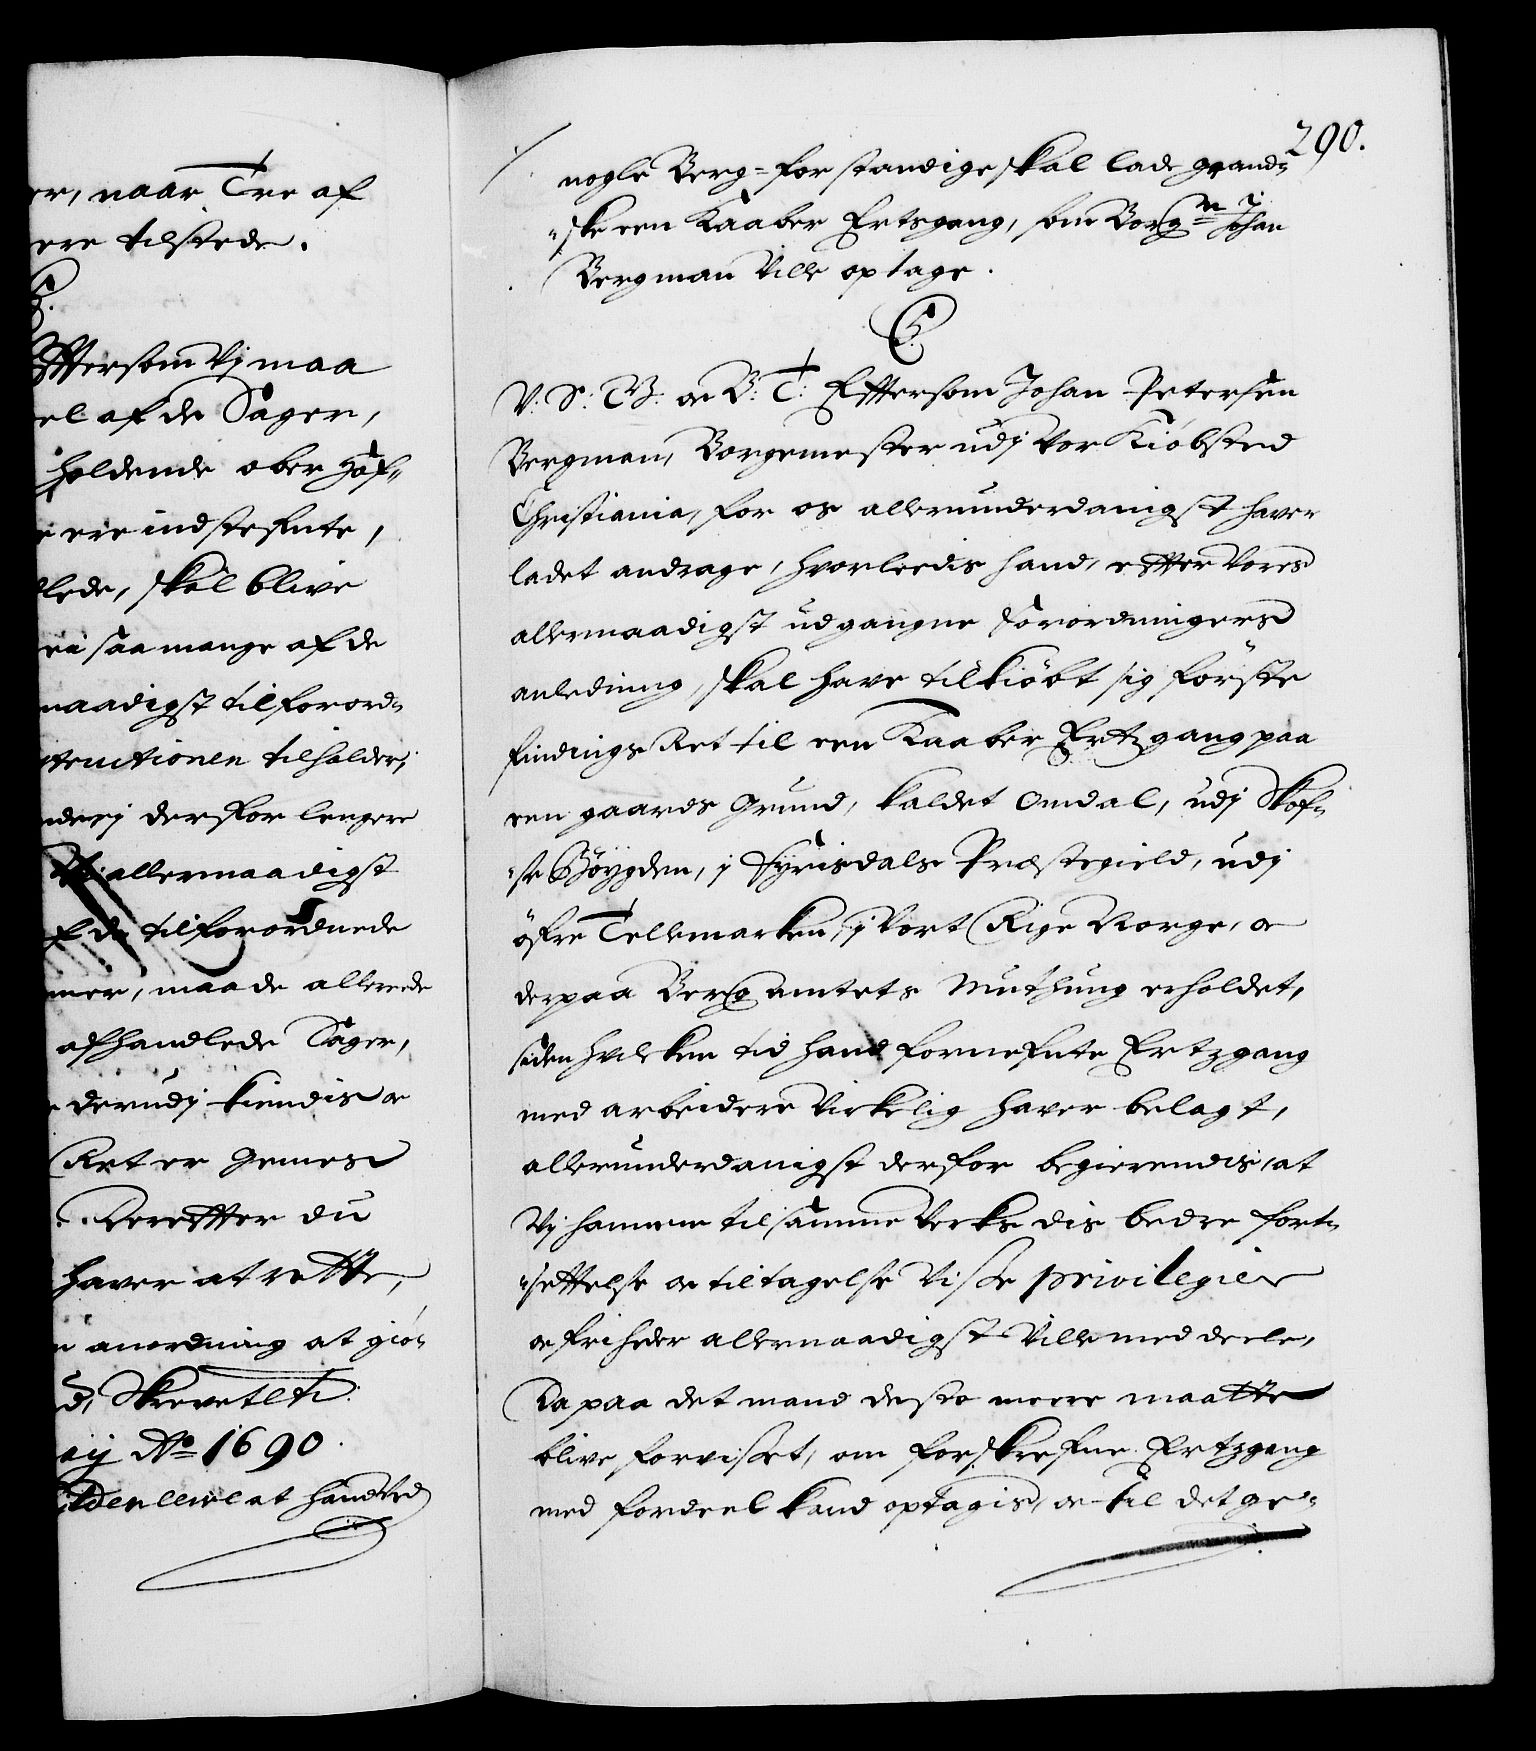 er, naar Tre af
ere tilstede.
C. 5.
Eftersom Vj maa
el af de Sager,
holdende ober Hof-
ere indstefnte,
lede, skal blive
saa mange af de
naadigst tilforord-
tructionen tilholder,
derfor lengere
Vj allernaadigst
f de tilforordnede
mer, maa de allerede
afhandlede Sager,
derudj kiendis oc
Ret er Gemes
Derefter du
haver at rette,
anordning at giö-
Skrevet etc:
ij Ao 1690.
Gÿldenlewe at haand

290.
nogle Berg-forstandige skal lade grand-
ske een Kaaber Ertsgang, som Borgmr Johan
Bergman Ville optage.
C. 5.
V: S: G: oc B: T: Eftersom Johan Petersen
Bergman, Borgemester udj Vor Kiöbsted
Christiania, for os allerunderdanigst haver
ladet andrage, hvorledis hand, efter Vores
allernaadigst udgangne Forordningers
anledning, skal have tilkiöbt sig förste
findings Ret til een Kaaber Ertzgang paa
een gaards Grund, kaldet Omdal, udj Skaf-
se Böygden, j Fyrisdals Præstegield, udj
öfre Tellemarken, j Vort Rige Norge, oc
derpaa Berg amtets Muthung erholdet,
siden hvilken tid hand fornefnte Ertzgang
med arbeidere Virkelig haver belagt,
allerunderdanigst derfor begierendis, at
Vj hannem til samme Verks dis bedre fort-
settelse oc tiltagelse Visse privilegier
oc friheder allernaadigst Ville meddeele,
Da paa det mand desto meere maatte
blive forvisset, om forskrefne Ertzgang
med fordeel kand optagis, oc til det ge-